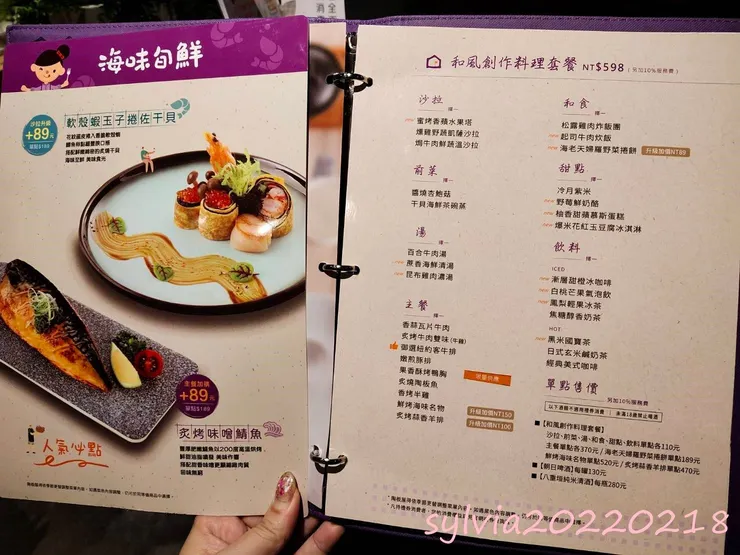 海味旬鮮
沙拉升級
+89元
單點$189
軟殼蝦玉子捲佐干貝
搭配鮮嫩綿密的炙燒干貝
海味足鮮 美味食光
主餐加購
+89元
單點$189
炙烤味噌鯖魚
人氣必點
肥美肥嫩鯖魚以200度高溫烘烤
鮮甜油脂擴發 美味作響
回味無窮
和風創作料理套餐 NT$598 (另加10%服務費)
沙拉 擇一
new 蜜烤香蘋水果塔
燻雞野蔬凱薩沙拉
焗牛肉鮮蔬溫沙拉
前菜 擇一
醬燒杏鮑菇
干貝海鮮茶碗蒸
湯 擇一
百合牛肉湯
new 蔗香海鮮清湯
new 昆布雞肉濃湯
主餐 擇一
香蒜瓦片牛肉
炙烤牛肉雙味(牛雞)
御選紐約客牛排
嫩煎豚排
果香酥烤鴨胸 限量供應
炙燒陶板魚
香烤半雞
鮮烤海味名物 升級加價NT150
炙烤蒜香羊排 升級加價NT100
和食 擇一
松露雞肉炸飯團
new 起司牛肉炊飯
new 海老天婦羅野菜捲餅 升級加價NT89
甜點 擇一
冷月紫米
new 野莓鮮奶酪
new 柚香甜蘋慕斯蛋糕
new 爆米花紅玉豆腐冰淇淋
飲料 擇一
ICED
new 漸層甜橙冰咖啡
new 白桃芒果氣泡飲
new 鳳梨輕果冰茶
焦糖醇香奶茶
HOT
new 黑米國寶茶
日式玄米鹹奶茶
經典美式咖啡
單點售價 另加10%服務費
以下酒類不適用禮券消費 未滿18歲禁止喝酒
■【和風創作料理套餐】
沙拉、前菜、湯、和食、甜點、飲料單點各110元
主餐單點各370元 / 海老天婦羅野菜捲餅單點189元
鮮烤海味名物單點520元 / 炙烤蒜香羊排單點470元
■【朝日啤酒】每罐130元
■【八重垣純米清酒】每瓶280元
sylvia20220218